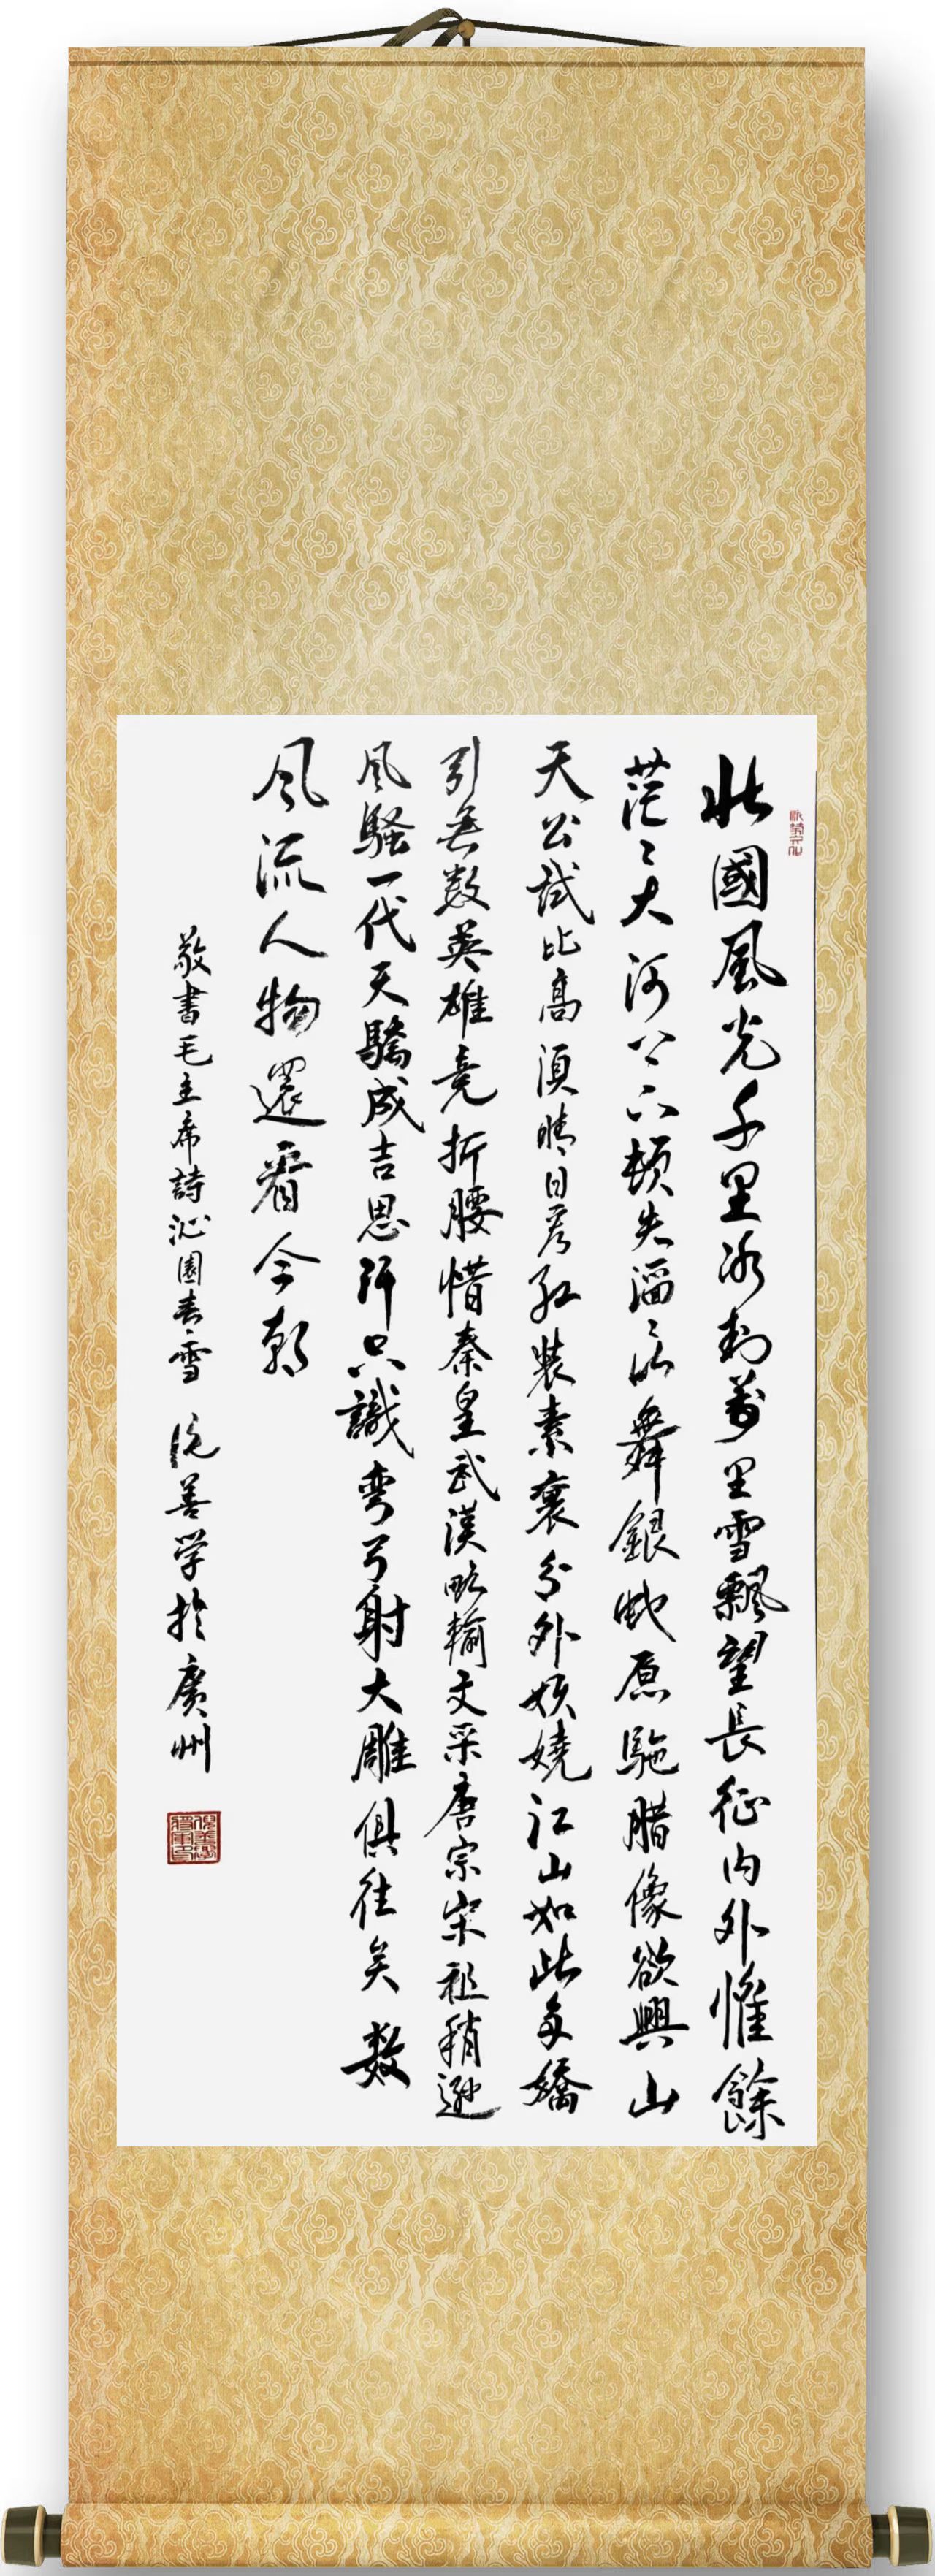 北國風光千里冰封萬里雪飄望長征内外惟餘
茫々大河上下頓失滔々山舞銀蛇原馳腊像欲與山
天公試比高須晴日看紅裝素裹分外妖嬈江山如此多嬌
引無数英雄竞折腰惜秦皇武漢略輸文采唐宗宋祖稍遜
風騷一代天驕成吉思汗只識彎弓射大雕俱往矣数
風流人物還看今朝
敬書毛主席詩沁園春雪 善学於廣州